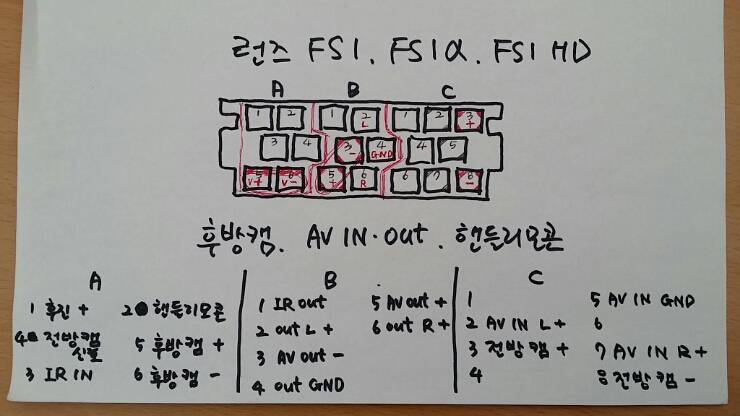 런즈 FS1. FS1α. FS1 HD
A B C
1 2 1 2 L 1 2 3 +
3 4 3 - 4 GND 4 5
5 V+ 6 V- 5 + 6 R 6 7 8 -
후방캠. AV IN·out. 핸들리모콘
A
1 후진 + 2 핸들리모콘
4 전방캠 신호 5 후방캠 +
3 IR IN 6 후방캠 -
B
1 IR out 5 AV out +
2 out L + 6 out R +
3 AV out -
4 out GND
C
1 5 AV IN GND
2 AV IN L + 6
3 전방캠 + 7 AV IN R +
4 8 전방캠 -